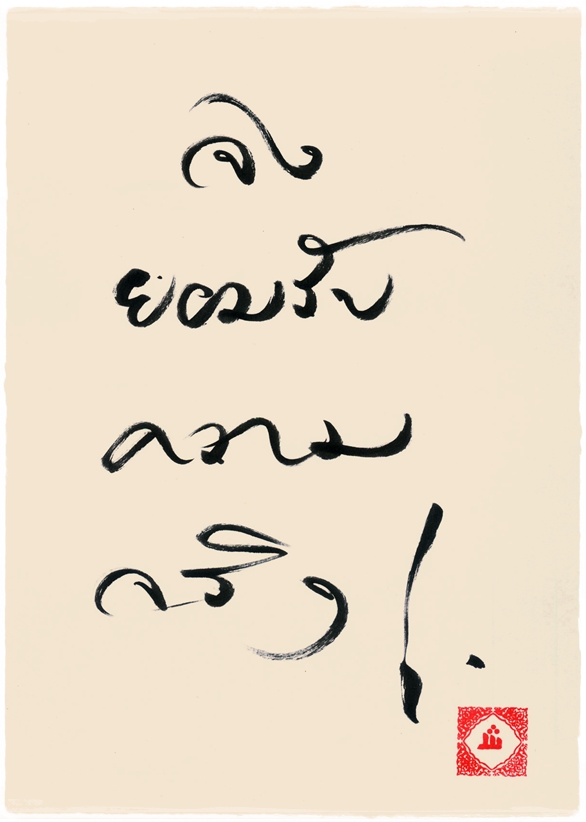 จง
ยอมรับ
ความ
จริง!